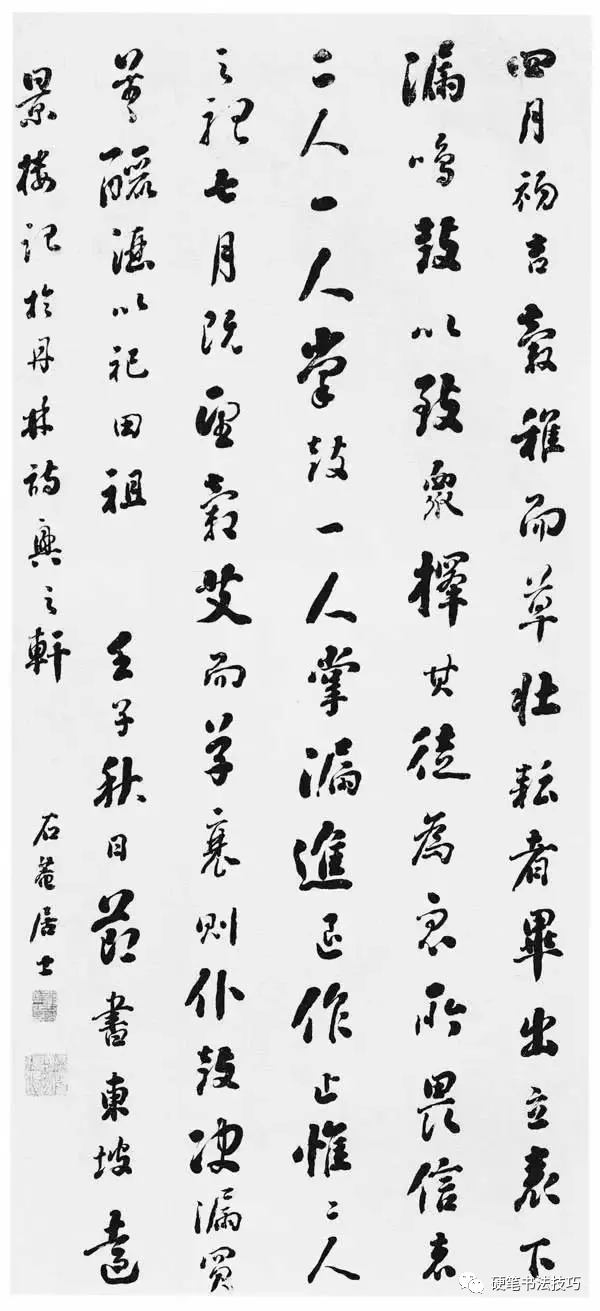 四月初吉穀稚而草壯耘者畢出立表下
漏鳴鼓以致衆擇其徒為衆所畏信者
二人一人掌鼓一人掌漏進退作止惟二人
之聽七月既望穀艾而草衰則仆鼓决漏買
羊釃酒以祀田祖 壬子秋日節書東坡遠
景樓記於丹林詩興之軒 石菴居士
硬笔书法技巧